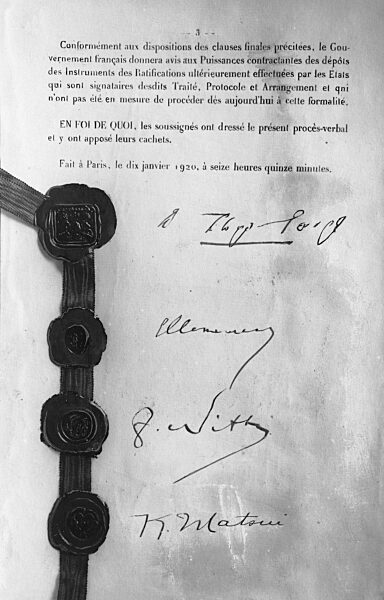 — 3 —
Conformément aux dispositions des clauses finales précitées, le Gou-
vernement français donnera avis aux Puissances contractantes des dépôts
des Instruments des Ratifications ultérieurement effectuées par les Etats
qui sont signataires desdits Traité, Protocole et Arrangement et qni
n'ont pas été en mesure de procéder dès aujourd'hui à cette formalité.
EN FOI DE QUOI, les soussignés ont dressé le présent procès-verbal
et y ont apposé leurs cachets.
Fait à Paris, le dix janvier 1920, à seize heures quinze minutes.
K. Matsui